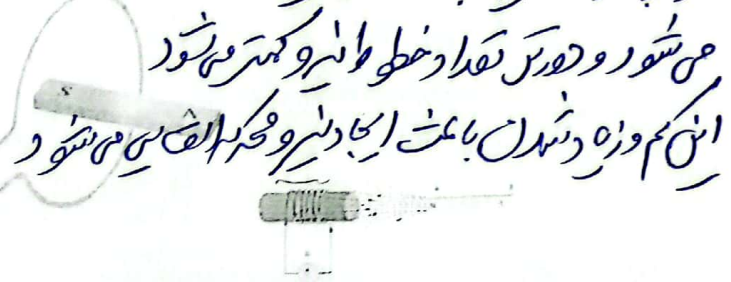 می شود و دورتر تعداد خطوط نیرو کمتر می شود
این کم و زیاد شدن باعث ایجاد نیرو محرکه القایی می شود
S